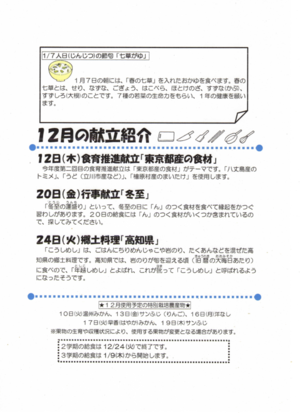 1/7人日(じんじつ)の節句「七草がゆ」
1月7日の朝には、「春の七草」を入れたおかゆを食べます。春の
七草とは、せり、なずな、ごぎょう、はこべら、ほとけのざ、すずな(かぶ)、
すずしろ(大根)のことです。7種の若菜の生命力をもらい、1年の健康を願い
ます。
12月の献立紹介
12日(木)食育推進献立「東京都産の食材」
今年度第二回の食育推進献立は「東京都産の食材」がテーマです。「八丈島産の
トミメ」、「うど(立川市産など)」、「檜原村産のまいたけ」を使用します。
20日(金)行事献立「冬至」
「冬至の運盛り」といって、冬至の日に「ん」のつく食材を食べて縁起をかつぐ
習わしがあります。20日の給食には「ん」のつく食材がいくつか含まれているの
で、探してみてください。
24日(火)郷土料理「高知県」
「こうしめし」は、ごはんにちりめんじゃこや岩のり、たくあんなどを混ぜた高
知県の郷土料理です。高知県では、岩のりが旬を迎える頃(旧暦の大晦日あたり)
に食べので、「年越しめし」とよばれ、これが訛って「こうしめし」と呼ばれるよう
になったそうです。
★12月使用予定の特別栽培農産物★
10日(火)温州みかん、13日(金)サンふじ(りんご)、16日(月)洋なし
17日(火)早香(はやか)みかん、19日(木)サンふじ
※果物の生育や収穫状況により、使用する果物が変更となる場合があります。
2学期の給食は12/24(火)で終了です。
3学期の給食は1/9(木)から開始します。